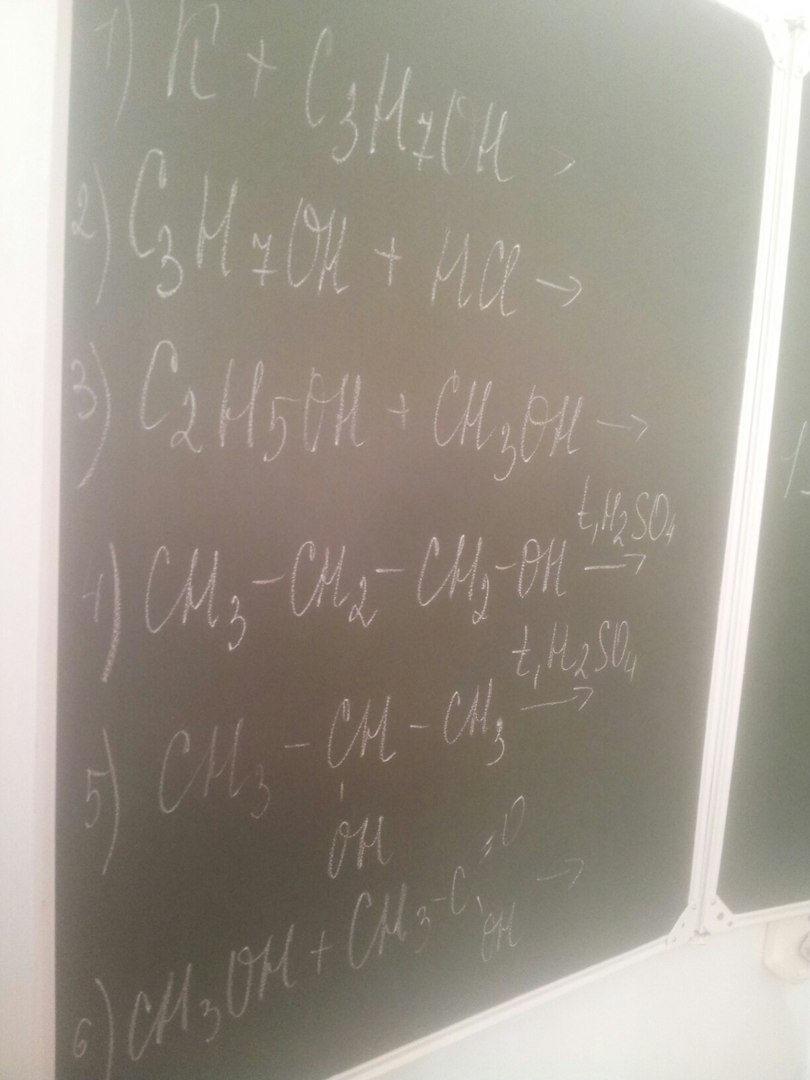 1) K + C₃H₇OH →
2) C₃H₇OH + HCl →
3) C₂H₅OH + CH₃OH →
t, H₂SO₄
4) CH₃ – CH₂ – CH₂ – OH →
t, H₂SO₄
5) CH₃ – CH – CH₃ →
OH
=O
6) CH₃OH + CH₃ – C →
OH